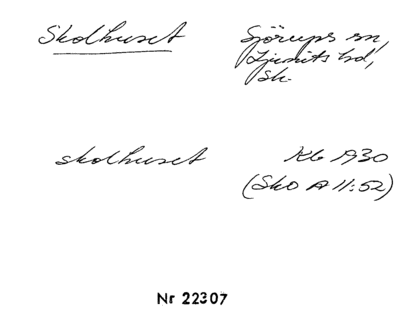 Skolhuset
Sjörups sn,
Ljunits hd,
Sk.
skolhuset
Kb 1930
(Sko A II:52)
Nr 22307